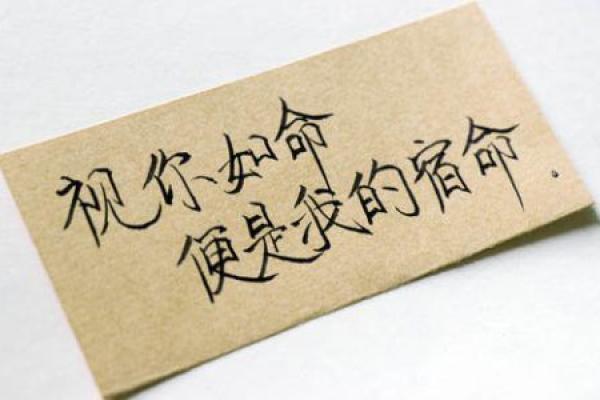 视你如命
便是我的宿命。